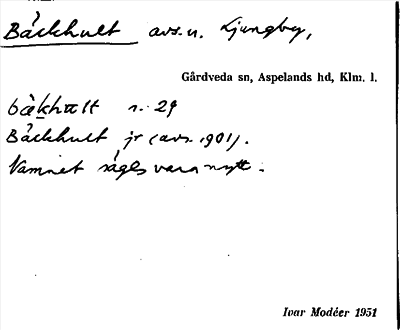 Bäckhult avs. u. Ljungby,
Gårdveda sn, Aspelands hd, Klm. l.
bäkhult n. 29
Bäckhult jr (avs. 1901).
Namnet säges vara nytt.
Ivar Modéer 1951